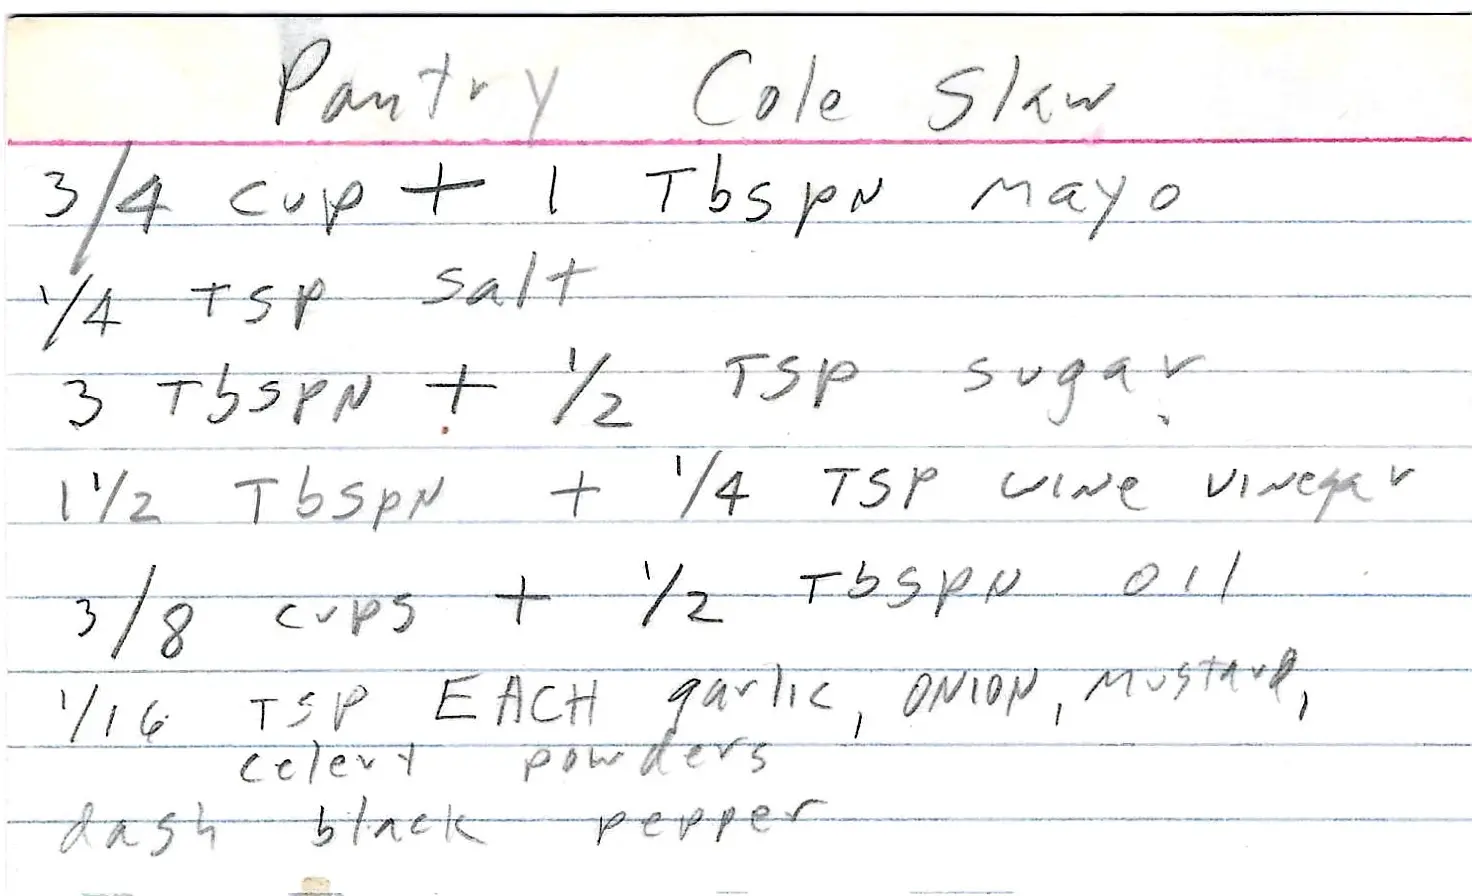 Pantry Cole Slaw
3/4 cup + 1 Tbspn mayo
1/4 TSP salt
3 TbspN + 1/2 TSP sugar
1 1/2 TbspN + 1/4 TSP wine vinegar
3/8 cups + 1/2 TbspN oil
1/16 TSP EACH garlic, ONION, mustard,
celery powders
dash black pepper